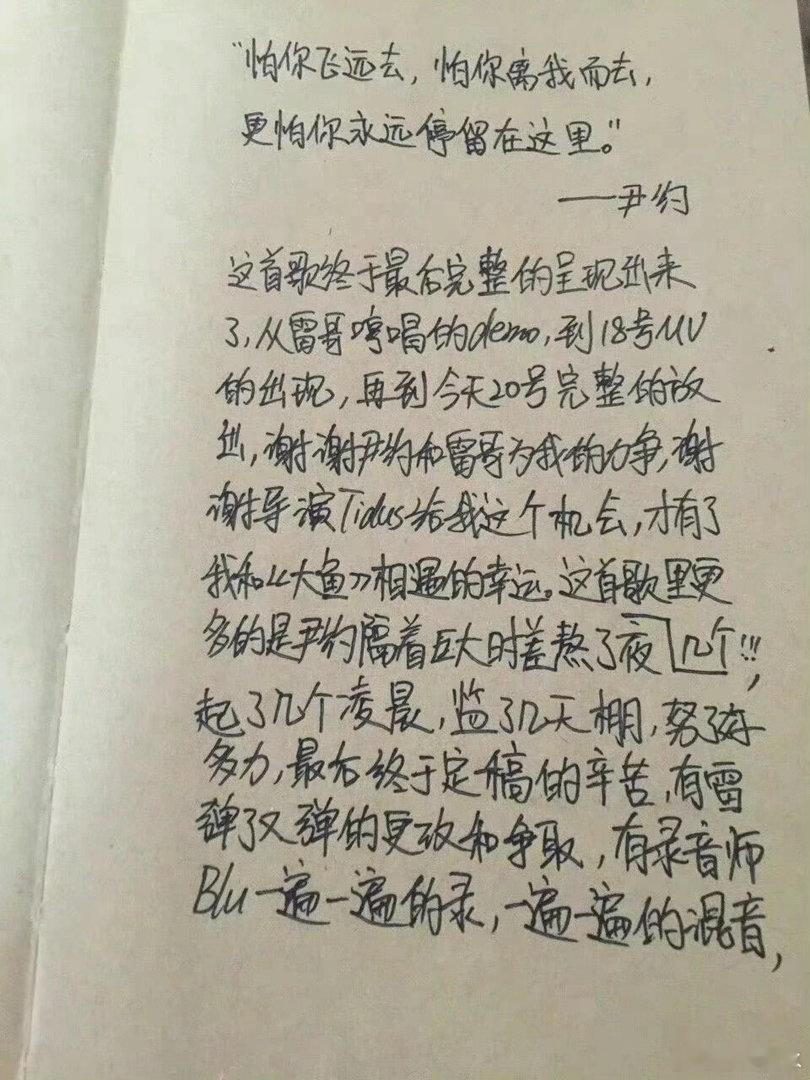 “怕你飞远去，怕你离我而去，
更怕你永远停留在这里。”
——尹约
这首歌终于最后完整的呈现出来
了，从雷哥哼唱的demo，到18号MV
的出现，再到今天20号完整的放
出，谢谢尹约和雷哥为我的力争，谢
谢导演Tidus给我这个机会，才有了
我和《大鱼》相遇的幸运。这首歌里更
多的是尹约隔着巨大时差熬了夜几个!!!，
起了几个凌晨，监了几天棚，努了好
多力，最后终于定稿的辛苦，有雷
弹了又弹的更改和争取，有录音师
Blu一遍一遍的录，一遍一遍的混音，